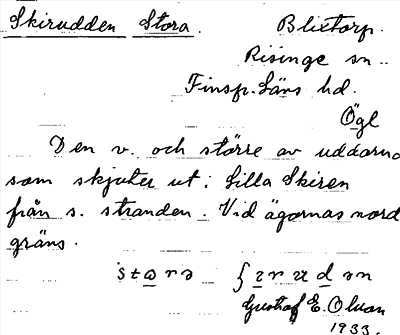 Skirudden Stora. Blixtorp.
Risinge sn..
Finsp. Läns hd.
Ögl
Den v. och större av uddarna
som skjuter ut i Lilla Skiren
från s. stranden. Vid ägornas nord
gräns.
stɷrə ʃɪrɯdən
Gustaf E. Olson
1933.